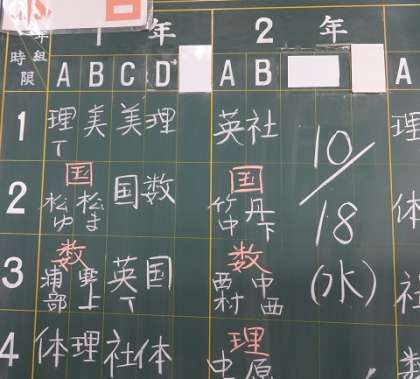 学組 1年 2年
時限 A B C D A B A
1 理T 美 美 理 英 社 10/18 理
2 国 松ゆ 松ま 国 数 国 竹中 丹下 体
3 数 浦部 野上 英T 国 数 西村 中西 (水) 社
4 体 理 社 体 理 中 原 数